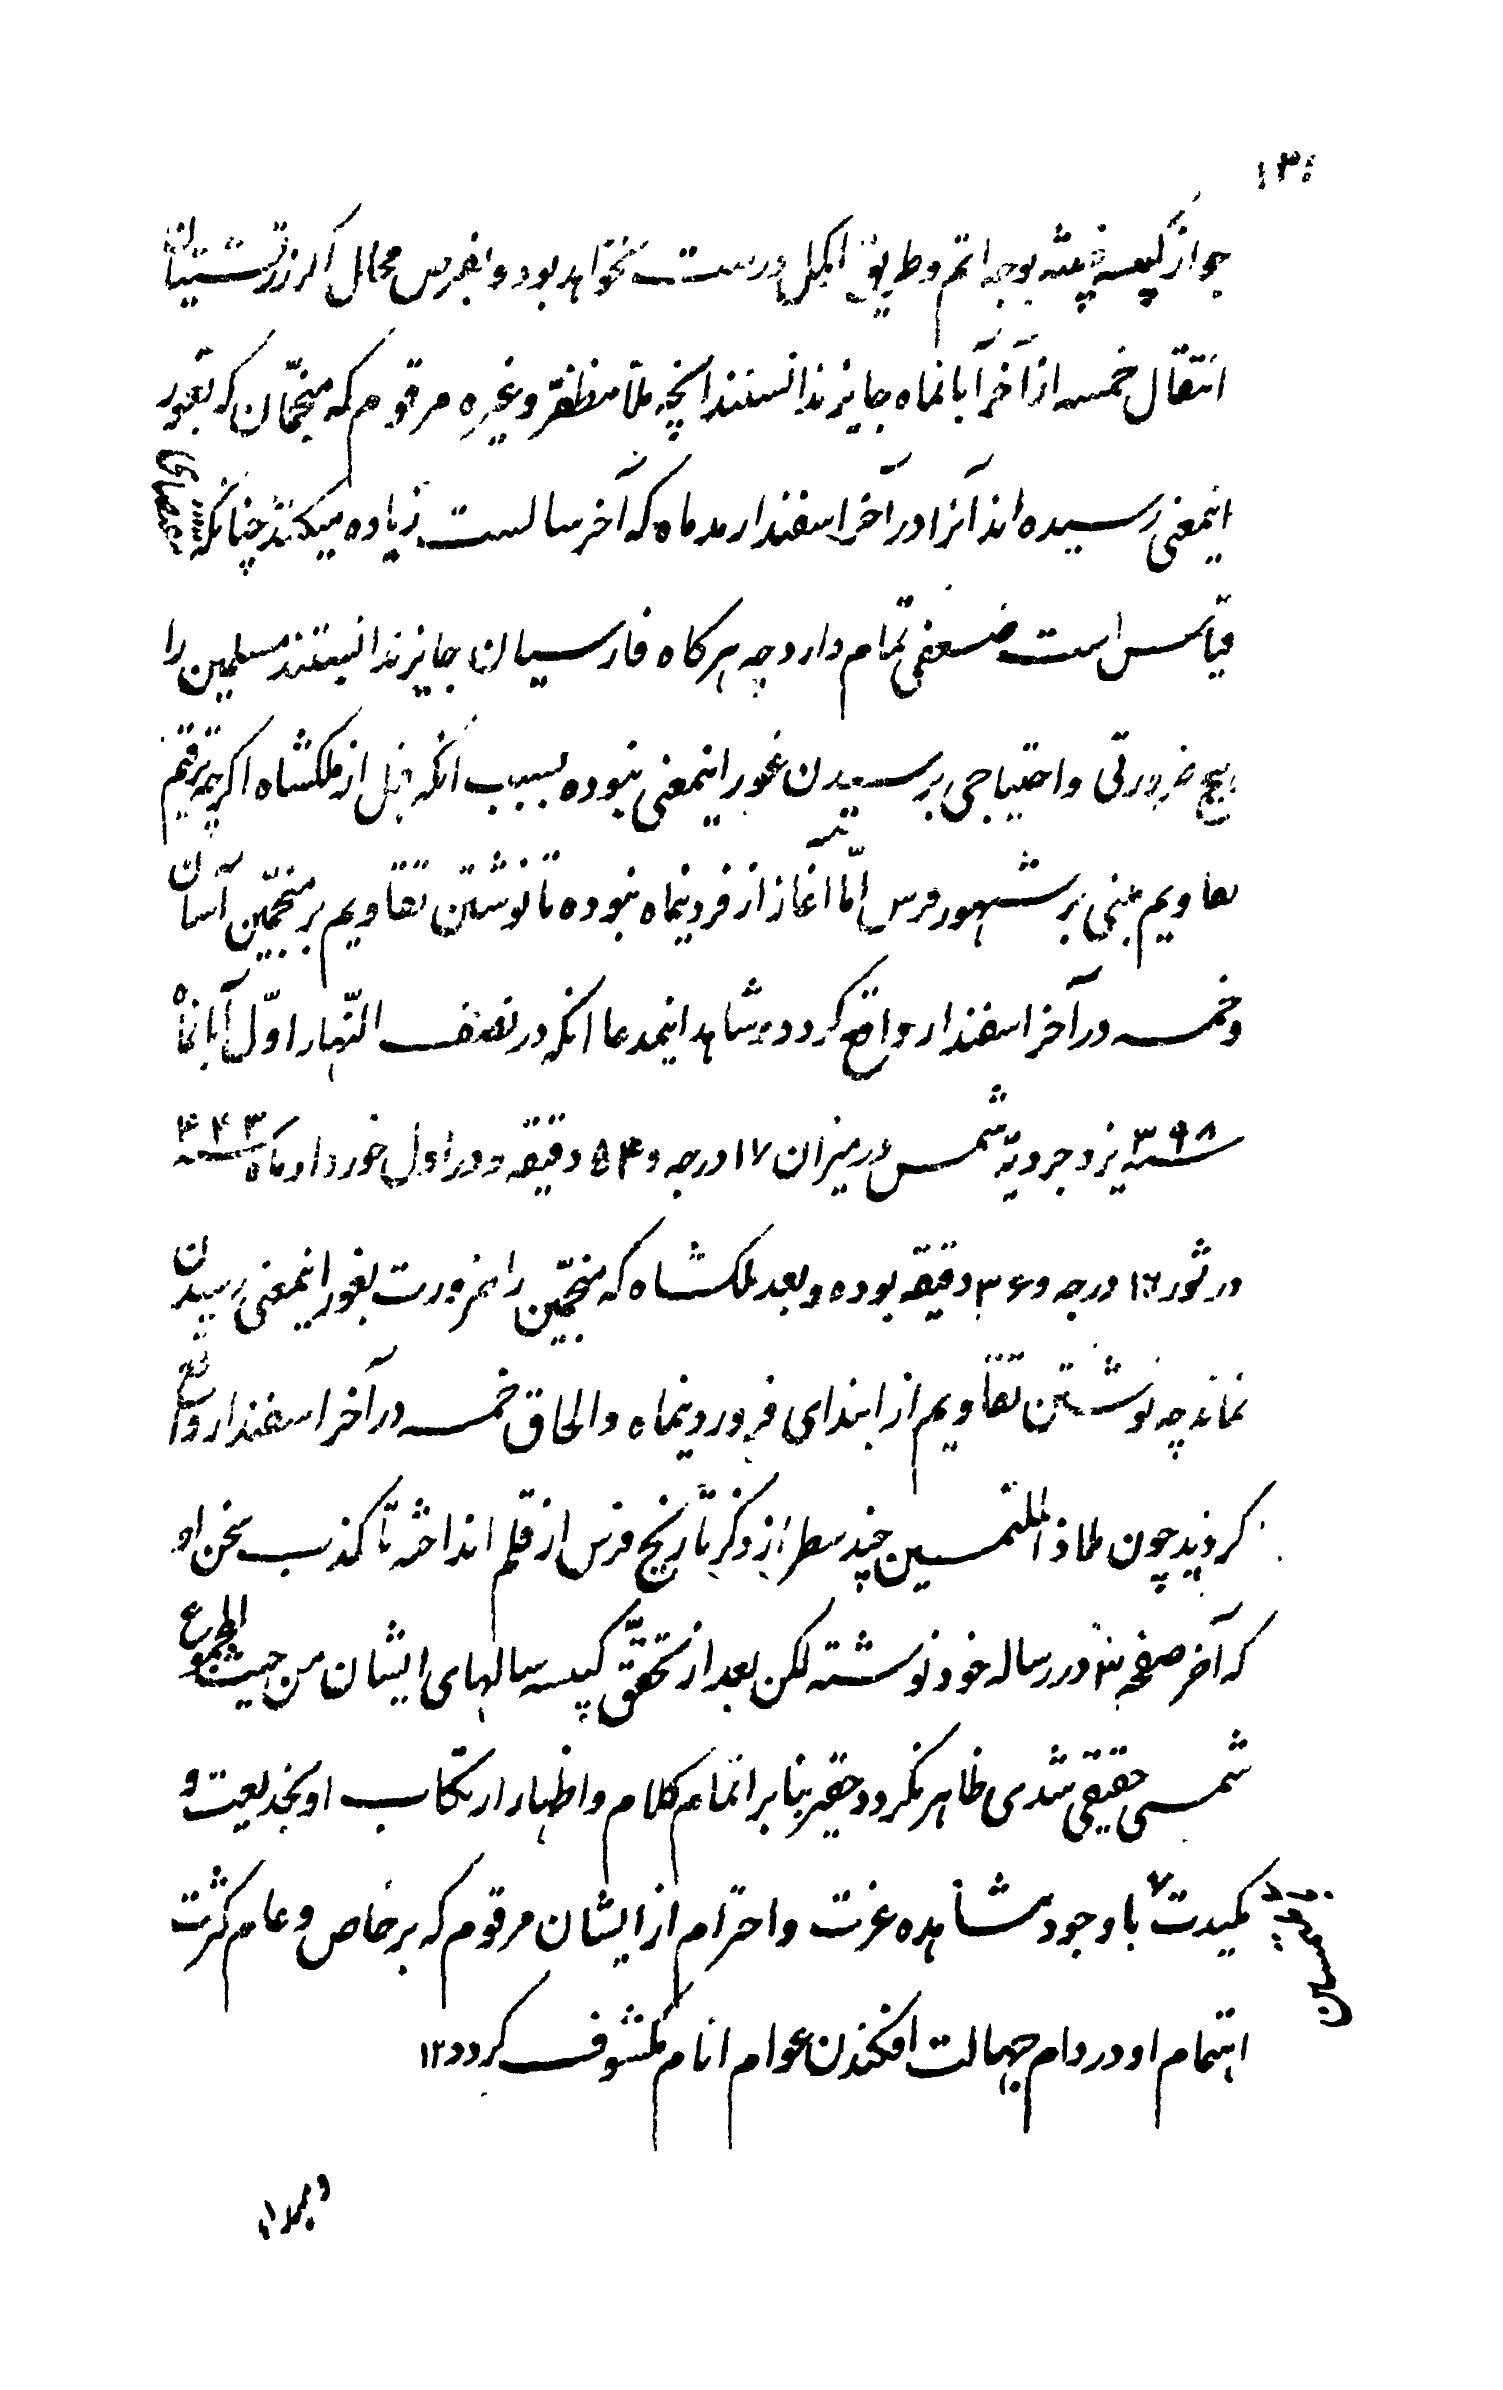 ۱۳۱
جواز کبیسه فیئته بوجه اتم و طریق اکمل درست نخواهد بود و بفرس محال اکر زرتشتیان
انتقال خمسه از آخر آبانماه جایز ندانستند انچه ملا مظفر و غیره مرقوم که منجمان که بغور
اینمعنی رسیده اند آنرا در آخر اسفندارمد ماه که آخر سالست زیاده میکنند چنانکه مقتضای
قیاس است ضعفی تمام دارد چه هرکاه فارسیان جایز ندانستند مسلمین را
هیچ ضرورتی و احتیاجی برسیدن غور اینمعنی نبوده بسبب انکه قبل از ملکشاه اکرچه ترقیم
تقاویم مبنی بر شهور فرس امّا آغاز از فردینماه نبوده تا نوشتن تقاویم بر منجّمین آسان
و خمسه در آخر اسفندار واقع کردد و شاهد اینمدعا انکه در نصف النّهار اوّل آبانماه
سنه ۳۹۸ یزدجردیّه شمس در میزان ۱۷ درجه و ۵۴ دقیقه و در اول خورداد ماه سنه ۴۴۳
در ثور ۱۶ درجه و ۳۶ دقیقه بوده و بعد ملکشاه که منجّمین را ضرورت بغور اینمعنی رسیدن
نماند چه نوشتن تقاویم از ابتدای فروردینماه و الحاق خمسه در آخر اسفندار واقع
کردید چون ملاذ الملتمسین چند سطر از ذکر تاریخ فرس از قلم انداخته تا کذب سخن او
که آخر صفحه ۳۰ در رساله خود نوشته لکن بعد از تحقّق کبیسه سالهای ایشان من حیث المجموع
شمسی حقیقی شدی ظاهر نکردد حقیر بنا بر اتمام کلام و اظهار ارتکاب او بخدیعت و
مکیدت با وجود مشاهده عزت و احترام از ایشان مرقوم که بر خاص و عام کثرت
اهتمام او در دام جهالت افکندن عوام انام مکشوف کردد ۱۲